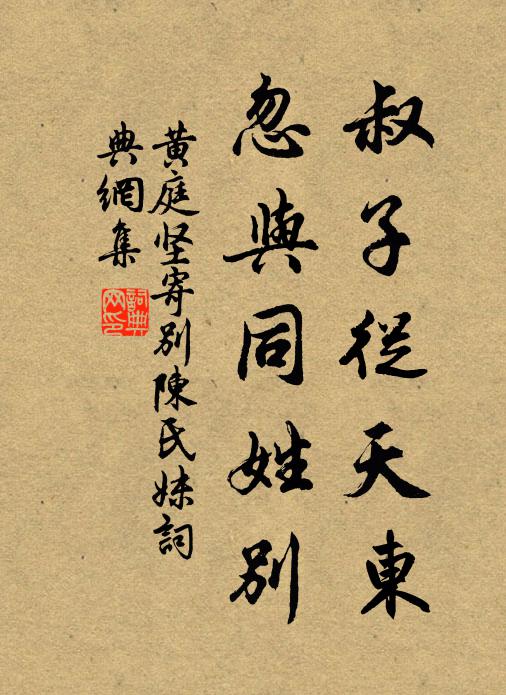 叔子從天東
忽與同姓別
黃庭坚寄別陳氏妹詞
典網集
詞典網印